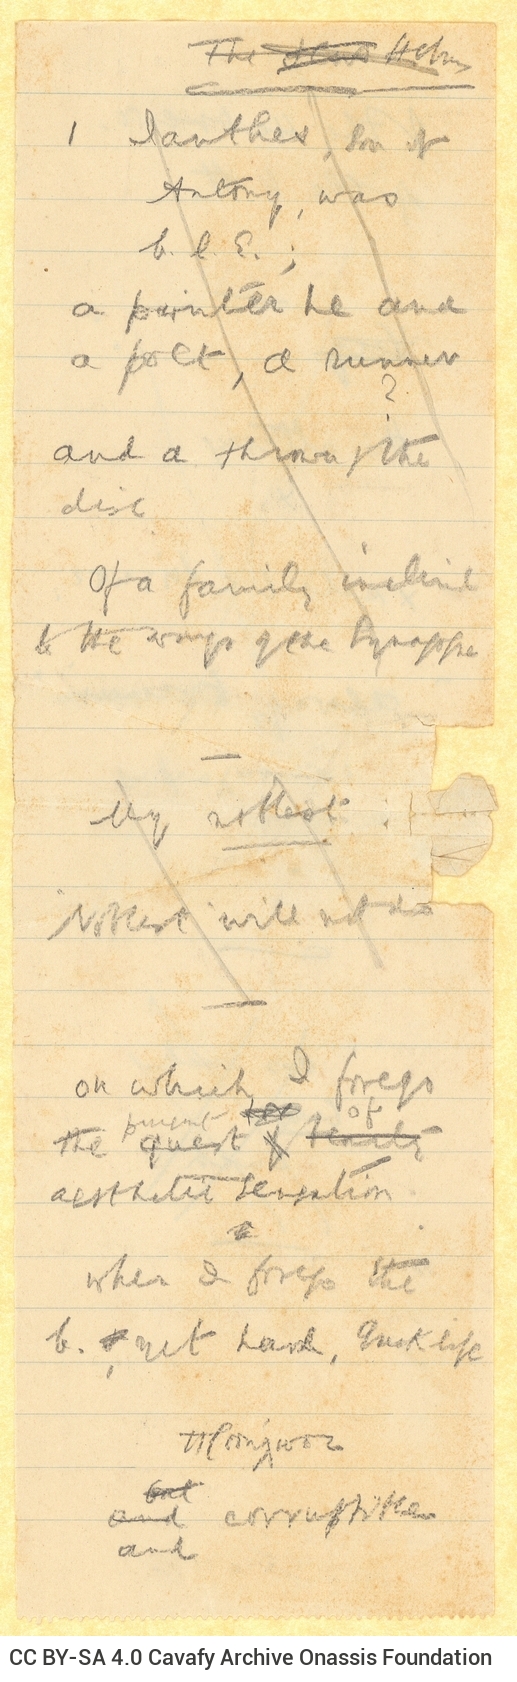 The Hebr
1 Ianthes, Son of
Antony, was
b. l. E. ;
a painter he and
a poet, a runner
?
and a thrower of the
disc
Of a family inclined
to the ways of the Synagogue
—
My noblest :
"Noblest" will not do
—
on which I forego
pursuit of
the quest of beauty
aesthetic sensation
when I forego the
b. , yet hard, Greek life
but
and corruptible
and
CC BY-SA 4.0 Cavafy Archive Onassis Foundation